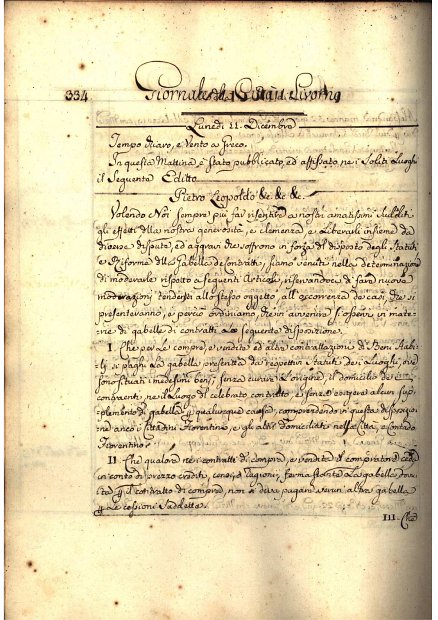 334
Giornale della Città di Livorno
Lunedì 11. Dicembre
Tempo chiaro, e Vento a Greco.
In questa Mattina è stato pubblicato, ed affissato nei Soliti Luoghi
il Seguente Editto
Pietro Leopoldo &c. &c. &c.
Volendo Noi sempre più far risentire a nostri amatissimi Sudditi
gli effetti della nostra generosità, e clemenza, e liberarli insieme da
diverse dispute, ed aggravi che soffrono in forza del disposto degli Statuti
e Riforme della Gabella de Contratti, siamo venuti nella determinazione
di moderarle rispetto a seguenti Articoli, riservandoci di fare nuove
moderazioni tendenti allo stesso oggetto, all'occorrenze de casi, che si
presenteranno, e perciò ordiniamo, che in avvenire si osservi in mate-
rie di gabelle di contratti la seguente disposizione.
I. Che per le compre, e vendite ed altre contrattazioni di Beni stabi-
li si paghi la gabella presentta da respettivi statuti dei Luoghi, ove
sono situati i medesimi beni, senza curare l'origine, il domicilio de
contraenti, ne il Luogo di celebrato contratto, e senz'esigere alcun sup-
plemento di gabella p qualunque causa, comprendendo in questa disposizio-
ne anco i Cittadini Fiorentini, e gli altri domiciliati nella Città, e Contado
Fiorentino.
II. Che qualora nei contratti di compre, e vendite il compratore ceda
in conto di prezzo crediti, censi, o ragioni, ferma stante la gabella dovu-
ta p il contratto di compre, non si deva pagare verun'altra gabella
p le cessioni suddette.
III. Che